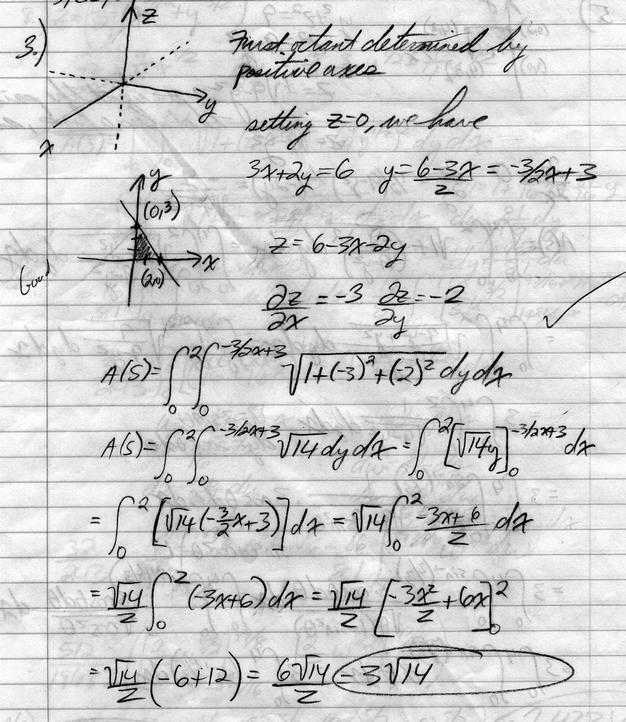 3.)
z
y
x
First octant determined by
positive axes
setting z=0, we have
3x+2y=6 y=\frac{6-3x}{2} = -3/2x+3
y
(0,3)
x
(2,0)
Good
z = 6-3x-2y
\frac{∂z}{∂x} = -3 \frac{∂z}{∂y} = -2
✓
A(S) = \int_0^2 \int_0^{-3/2x+3} \sqrt{1+(-3)^2+(-2)^2} dy dx
A(S) = \int_0^2 \int_0^{-3/2x+3} \sqrt{14} dy dx = \int_0^2 [\sqrt{14}y]_0^{-3/2x+3} dx
= \int_0^2 [\sqrt{14}(-\frac{3}{2}x+3)] dx = \sqrt{14} \int_0^2 \frac{-3x+6}{2} dx
= \frac{\sqrt{14}}{2} \int_0^2 (-3x+6) dx = \frac{\sqrt{14}}{2} [\frac{-3x^2}{2} + 6x]_0^2
= \frac{\sqrt{14}}{2} (-6+12) = \frac{6\sqrt{14}}{2} = 3\sqrt{14}